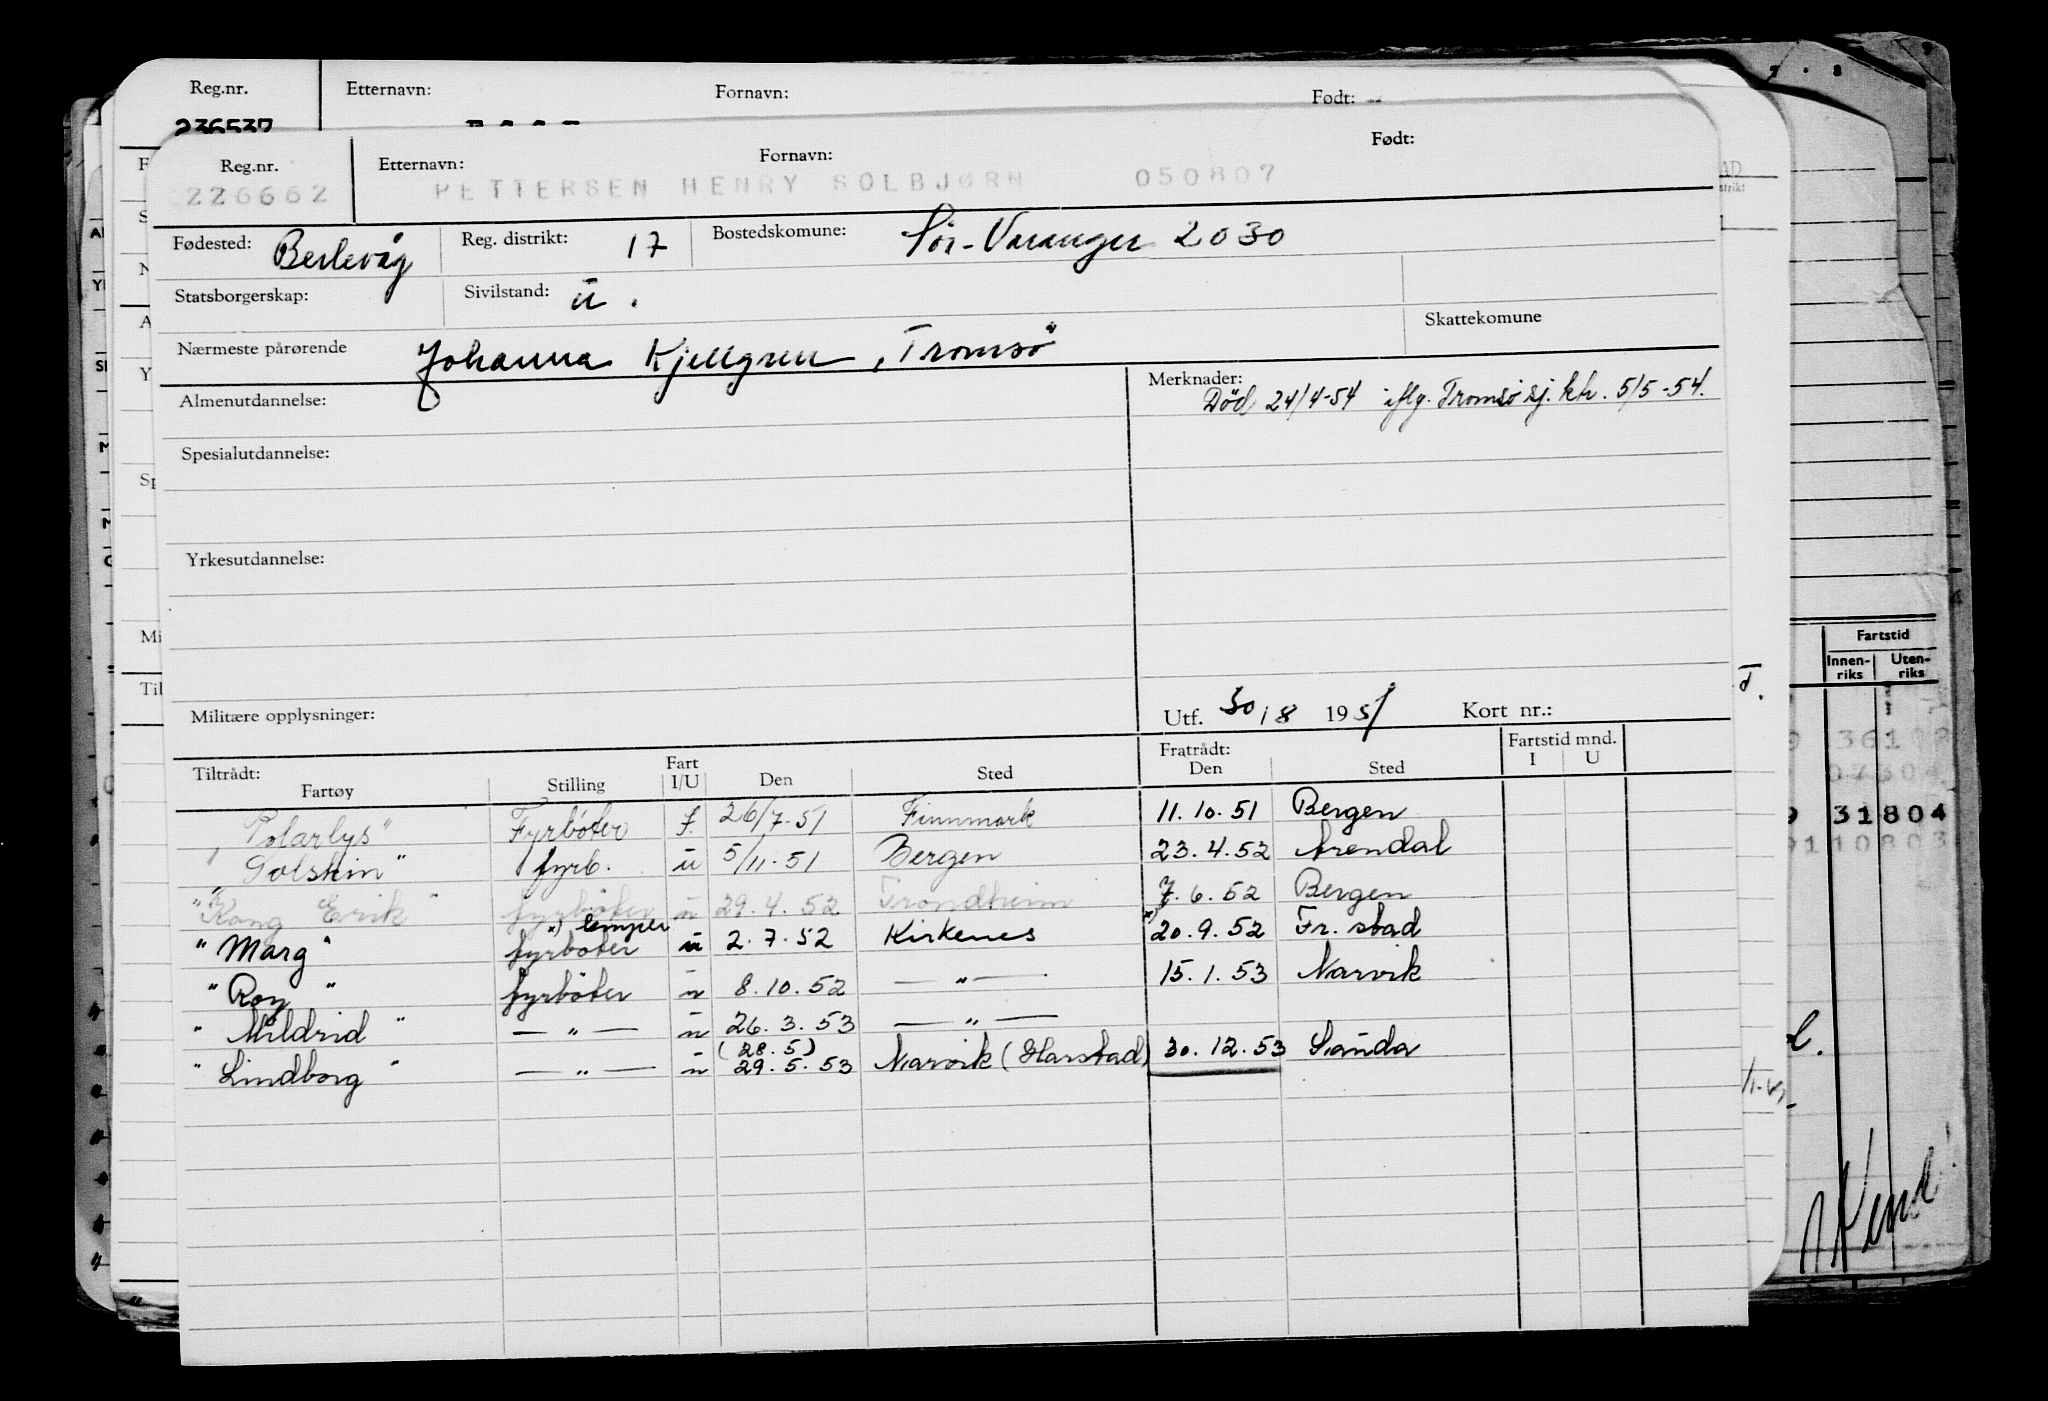 Reg.nr. Etternavn: Fornavn: Født:
236537
Reg.nr. Etternavn: Fornavn: Født:
226662 PETTERSEN HENRY SOLBJØRN 050807
Fødested: Berlevåg Reg. distrikt: 17 Bostedskomune: Sør-Varanger 2030
Statsborgerskap: Sivilstand: u.
Skattekomune
Nærmeste pårørende Johanna Kjellgren, Tromsö
Almenutdannelse: Merknader:
Död 24/4-54 iflg. Tromsö sj. ktr. 5/5-54.
Spesialutdannelse:
Yrkesutdannelse:
Militære opplysninger: Utf. 30/8 1951 Kort nr.:
Tiltrådt: Fart Fratrådt: Fartstid mnd.
Fartøy Stilling I/U Den Sted Den Sted I U
"Polarlys" Fyrböter f. 26/7-51 Finnmark 11.10.51 Bergen
"Solskin" fyrb. u 5/11-51 Bergen 23.4.52 Arendal
"Kong Erik" fyrböter u 29.4.52 Trondheim 7.6.52 Bergen
x) lemper
"Marg" fyrböter u 2.7.52 Kirkenes x) 20.9.52 Fr.stad
"Roy" fyrböter u 8.10.52 — " — 15.1.53 Narvik
"Mildrid" — " — u 26.3.53 — " —
(28.5)
"Lindborg" — " — u 29.5.53 Narvik (Harstad) 30.12.53 Sauda
Fartstid
Innen-riks Uten-riks
31804